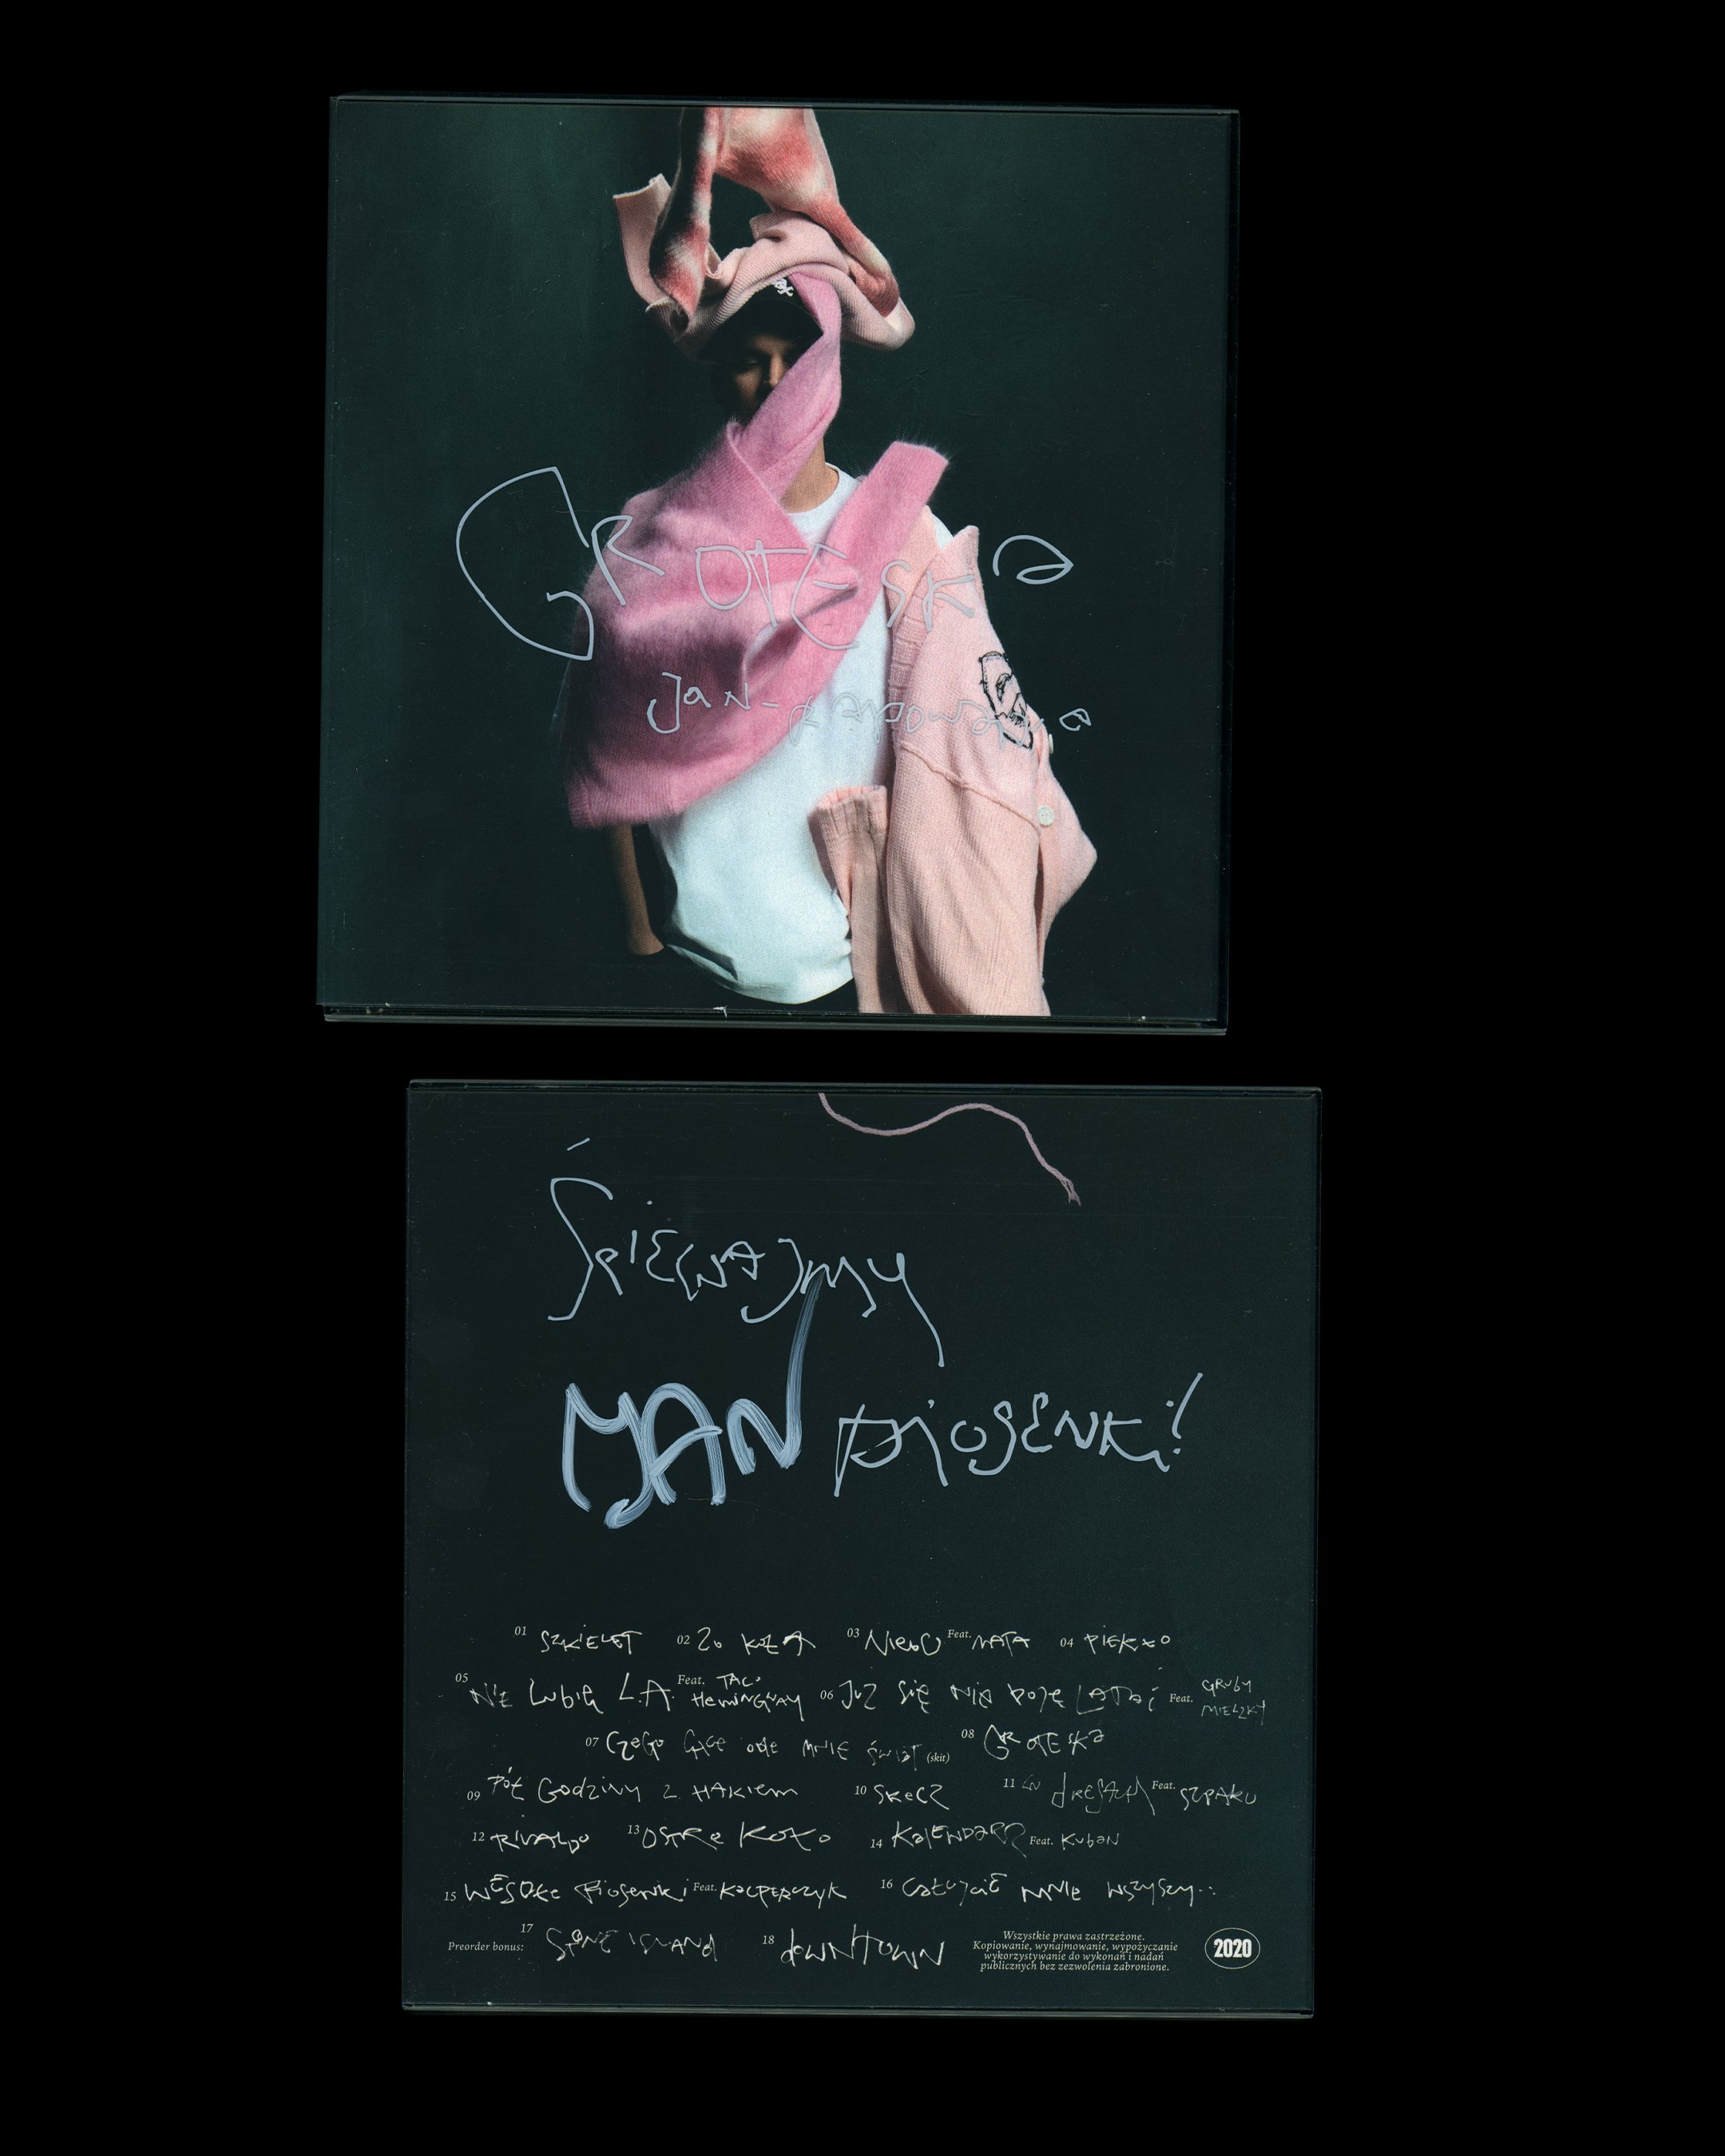 GROTESKA
JAN-RAPOWANIE
ŚPIEWAJMY
JAN PIOSENKI!
01 SZKIELET 02 Zo KOZA 03 NIEBO Feat. MATA 04 PIEKŁO
05 NIE LubIĘ L.A. Feat. TACO HemiNGWAY 06 JUŻ Się NIE BOJĘ LATAć Feat. GRUBY MIELZKY
07 CzeGo CHCE ode MNIE ŚWIAT (skit) 08 GROTESKa
09 PÓŁ GodziNy Z HAKiem 10 SKeCZ 11 W dRESACH Feat. SZPAKU
12 RIVALDO 13 OSTRe KOŁO 14 KalENDARZ Feat. KubaN
15 WESOŁe PioseNki Feat. KACPERCZYK 16 CałujciE MNIe WSZySCy..
Preorder bonus: 17 STONE ISLANd 18 dOWNTOWN
Wszystkie prawa zastrzeżone.
Kopiowanie, wynajmowanie, wypożyczanie
wykorzystywanie do wykonań i nadań
publicznych bez zezwolenia zabronione.
2020